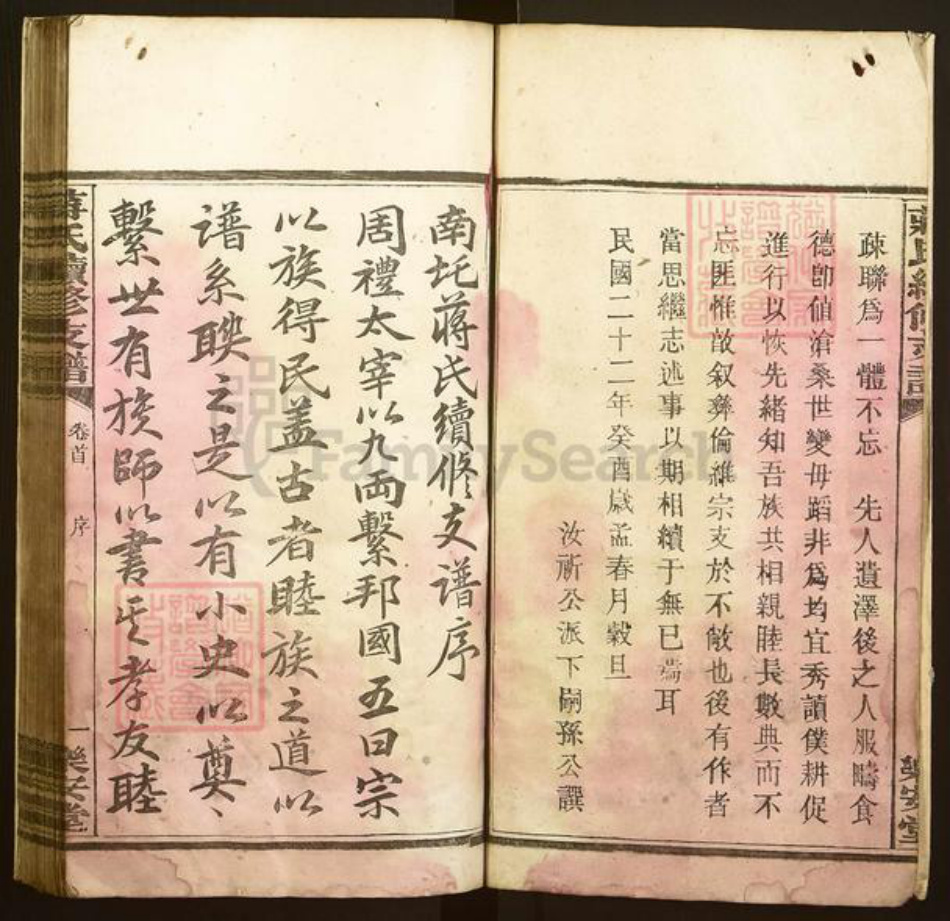 疎聯為一體不忘　先人遺澤後之人服疇食
德卽値滄桑世變毋蹈非為均宜秀讀僕耕促
進行以恢先緒知吾族共相親睦長敦典而不
忘匪惟敢叙彝倫維宗支於不敝也後有作者
當思繼志述事以期相續于無已焉耳
民國二十二年癸酉歲孟春月穀旦
汝所公派下嗣孫公譔
樂安堂
南圫蔣氏續修支譜序
周禮太宰以九兩繫邦國五曰宗
以族得民蓋古者睦族之道以
譜系聯之是以有小史以奠
繫世有族師以書其孝友睦
蔣氏續修支譜
卷首
序
一
樂安堂
FamilySearch